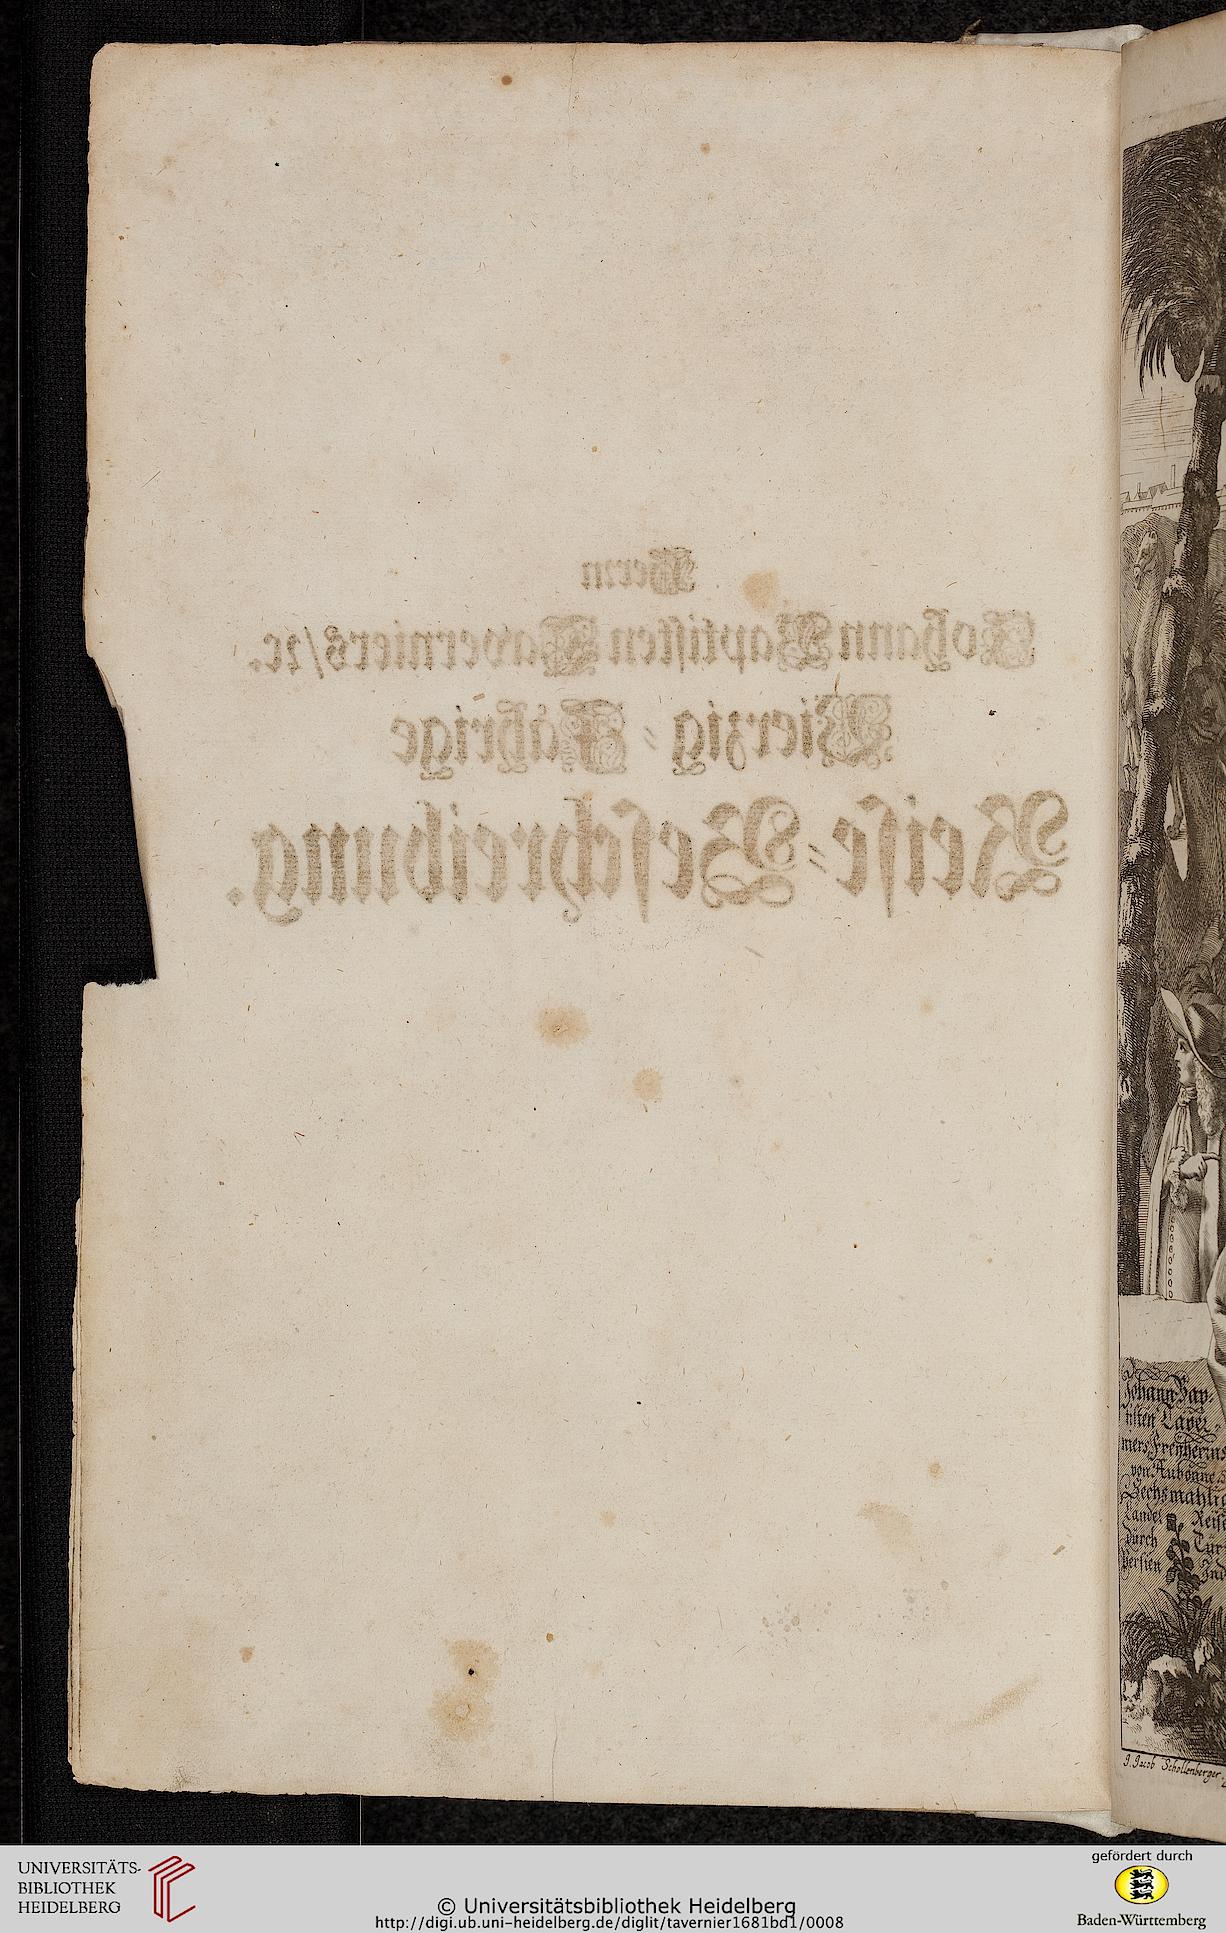 Herrn
Johann Baptisten Taverniers/ꝛc.
Vierzig-Jährige
Reise-Beschreibung.
Johann Bap-
tisten Taver-
niers Freÿherrns
von Aubonne
Sechsmahlig
Landes Reise
durch Tür
Persien Ind
J. Jacob Schollenberger
UNIVERSITÄTS-
BIBLIOTHEK
HEIDELBERG
© Universitätsbibliothek Heidelberg
http://digi.ub.uni-heidelberg.de/diglit/tavernier1681bd1/0008
gefördert durch
Baden-Württemberg